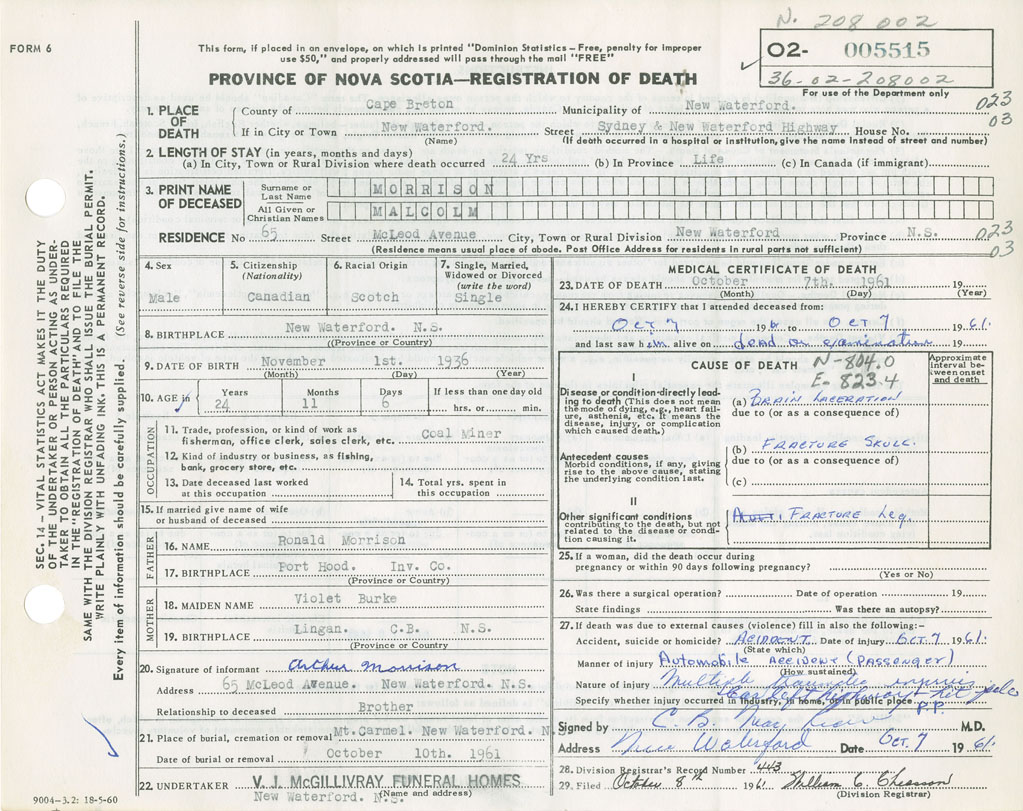 N. 208 002
FORM 6
This form, if placed in an envelope, on which is printed "Dominion Statistics — Free, penalty for improper
use $50," and properly addressed will pass through the mail "FREE"
02- 005515
36-02-208002
For use of the Department only
PROVINCE OF NOVA SCOTIA—REGISTRATION OF DEATH
SEC. 14 — VITAL STATISTICS ACT MAKES IT THE DUTY
OF THE UNDERTAKER OR PERSON ACTING AS UNDER-
TAKER TO OBTAIN ALL THE PARTICULARS REQUIRED
IN THE "REGISTRATION OF DEATH" AND TO FILE THE
SAME WITH THE DIVISION REGISTRAR WHO SHALL ISSUE THE BURIAL PERMIT.
WRITE PLAINLY WITH UNFADING INK. THIS IS A PERMANENT RECORD.
Every item of information should be carefully supplied. (See reverse side for instructions.)
1. PLACE OF DEATH
County of Cape Breton Municipality of New Waterford. 023
03
If in City or Town New Waterford. Street Sydney & New Waterford Highway House No.
(Name) (If death occurred in a hospital or institution, give the name instead of street and number)
2. LENGTH OF STAY (in years, months and days)
(a) In City, Town or Rural Division where death occurred 24 Yrs (b) In Province Life (c) In Canada (if immigrant)
3. PRINT NAME OF DECEASED
Surname or Last Name MORRISON
All Given or Christian Names MALCOLM
RESIDENCE No 65 Street McLeod Avenue City, Town or Rural Division New Waterford Province N.S. 023
03
(Residence means usual place of abode. Post Office Address for residents in rural parts not sufficient)
4. Sex Male
5. Citizenship (Nationality) Canadian
6. Racial Origin Scotch
7. Single, Married, Widowed or Divorced (write the word) Single
8. BIRTHPLACE New Waterford. N.S.
((Province or Country)
9. DATE OF BIRTH November 1st. 1936
(Month) (Day) (Year)
10. AGE in Years 24 Months 11 Days 6 If less than one day old hrs. or min.
OCCUPATION
11. Trade, profession, or kind of work as
fisherman, office clerk, sales clerk, etc. Coal Miner
12. Kind of industry or business, as fishing,
bank, grocery store, etc.
13. Date deceased last worked
at this occupation
14. Total yrs. spent in
this occupation
15. If married give name of wife
or husband of deceased
FATHER
16. NAME Ronald Morrison
17. BIRTHPLACE Port Hood. Inv. Co.
(Province or Country)
MOTHER
18. MAIDEN NAME Violet Burke
19. BIRTHPLACE Lingan. C.B. N.S.
(Province or Country
20. Signature of informant Arthur Morrison
Address 65 McLeod Avenue. New Waterford. N.S.
Relationship to deceased Brother
21. Place of burial, cremation or removal Mt.Carmel. New Waterford. N
Date of burial or removal October 10th. 1961
22. UNDERTAKER V. J. McGILLIVRAY FUNERAL HOMES
New Waterford. N.S. (Name and address)
9004—3.2: 18-5-60
MEDICAL CERTIFICATE OF DEATH
23. DATE OF DEATH October 7th. 1961 19
(Month) (Day) (Year)
24. I HEREBY CERTIFY that I attended deceased from:
Oct 7 196 to Oct 7 1961.
and last saw him alive on dead on examination 19
CAUSE OF DEATH N-804.0
E-823.4
Approximate Interval between onset and death
I
Disease or condition directly leading to death (This does not mean the mode of dying, e.g., heart failure, asthenia, etc. It means the disease, injury, or complication which caused death.)
(a) BRAIN LACERATION
due to (or as a consequence of)
Antecedent causes
Morbid conditions, if any, giving rise to the above cause, stating the underlying condition last.
(b) FRACTURE SKULL.
due to (or as a consequence of)
(c)
II
Other significant conditions contributing to the death, but not related to the disease or condition causing it.
FRACTURE Leg.
25. If a woman, did the death occur during
pregnancy or within 90 days following pregnancy?
(Yes or No)
26. Was there a surgical operation? Date of operation 19
State findings Was there an autopsy?
27. If death was due to external causes (violence) fill in also the following:—
Accident, suicide or homicide? ACIDENT Date of injury Oct 7 1961.
(State which)
Manner of injury Automobile ACCIDENT (PASSENGER)
(How sustained)
Nature of injury Multiple injuries
Car left highway - hit pole
Specify whether injury occurred in industry, in home, or in public place P.P.
Signed by C. B. M.D.
Address New Waterford Date Oct. 7 1961.
28. Division Registrar's Record Number 443
29. Filed October 8th 1961 William C Chiasson
(Division Registrar)